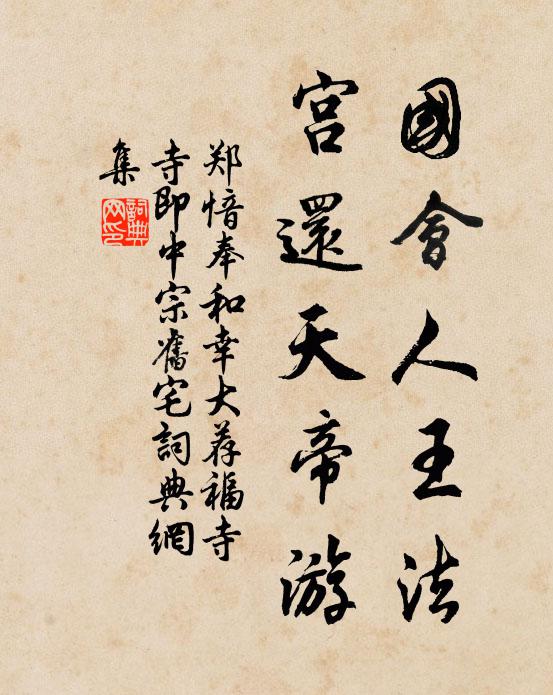 國會人王法
宮還天帝游
郑愔奉和幸大荐福寺
寺即中宗舊宅詞典網
集
詞典網印